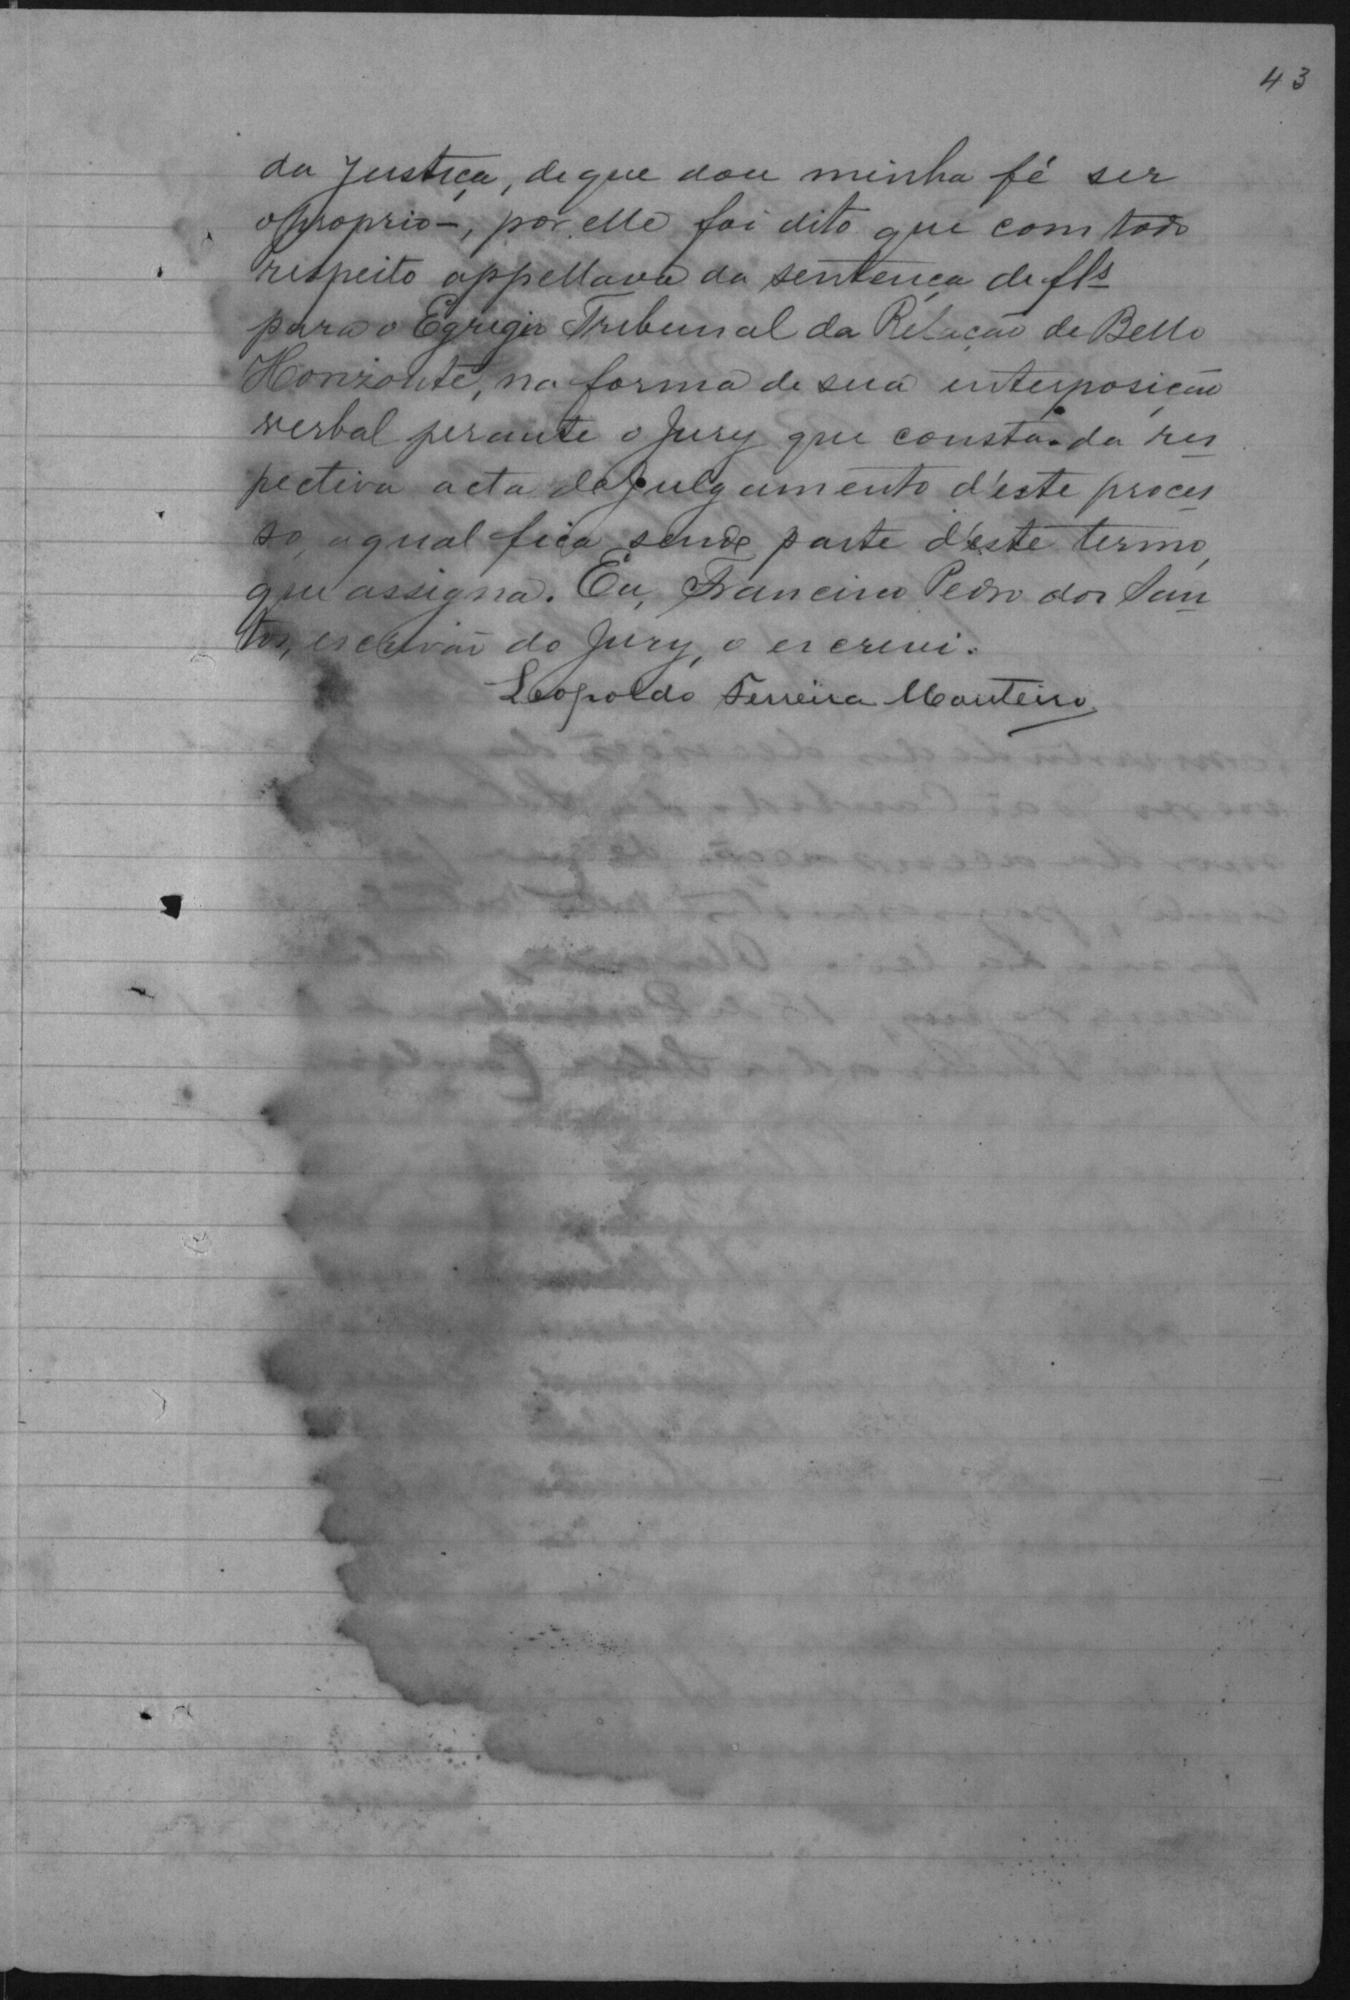 43
da Justiça, de que dou minha fé ser
o proprio-, por elle foi dito que com todo
respeito appellava da sentença de fls
para o Egregio Tribunal da Relação de Bello
Horizonte, na forma de sua interposição
verbal perante o Jury que consta da res
pectiva acta de julgamento d'este proces
so, a qual fica sendo parte d'este termo,
que assigna. Eu, Francisco Pedro dos San
tos, escrivão do Jury, o escrevi.
Leopoldo Ferreira Monteiro